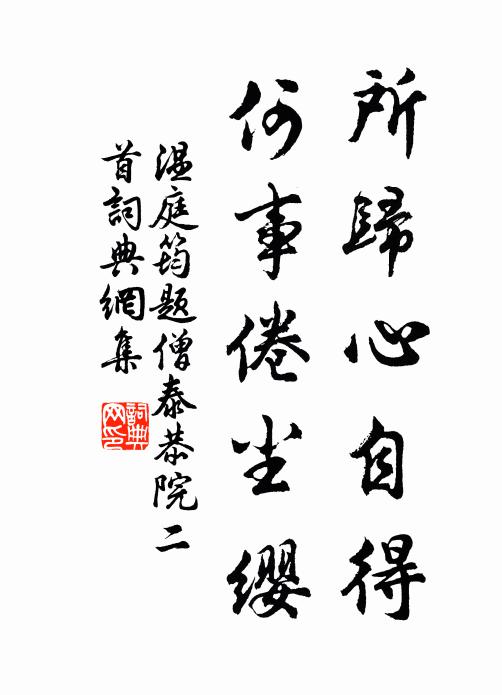 所歸心自得
何事倦尘纓
温庭筠題僧泰恭院二
首詞典網集
詞典
网印